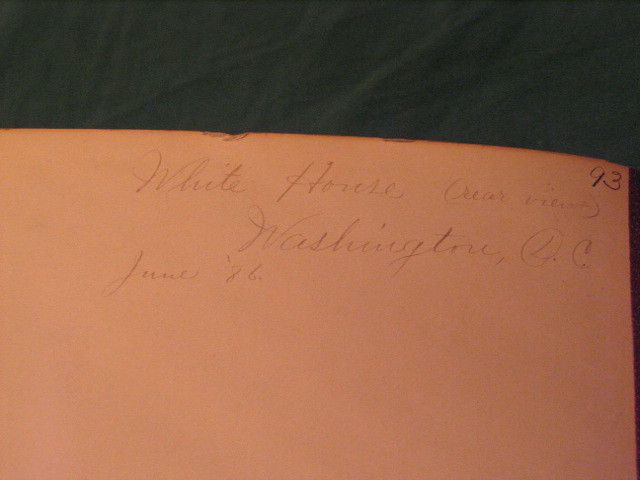 93
White House, (rear view)
Washington, D.C.
June '86.